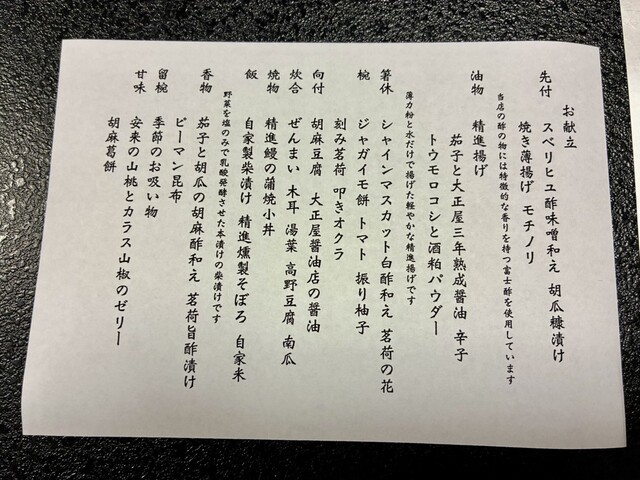 お献立
先付 スベリヒユ酢味噌和え 胡瓜糠漬け
焼き薄揚げ モチノリ
当店の酢の物には特徴的な香りを持つ富士酢を使用しています
油物 精進揚げ
茄子と大正屋三年熟成醤油 辛子
トウモロコシと酒粕パウダー
薄力粉と水だけで揚げた軽やかな精進揚げです
箸休 シャインマスカット白酢和え 茗荷の花
椀 ジャガイモ餅 トマト 振り柚子
刻み茗荷 叩きオクラ
向付 胡麻豆腐 大正屋醤油店の醤油
炊合 ぜんまい 木耳 湯葉 高野豆腐 南瓜
焼物 精進鰻の蒲焼小丼
飯 自家製柴漬け 精進燻製そぼろ 自家米
野菜を塩のみで乳酸発酵させた本漬けの柴漬けです
香物 茄子と胡瓜の胡麻酢和え 茗荷旨酢漬け
ピーマン昆布
留椀 季節のお吸い物
甘味 安来の山桃とカラス山椒のゼリー
胡麻葛餅